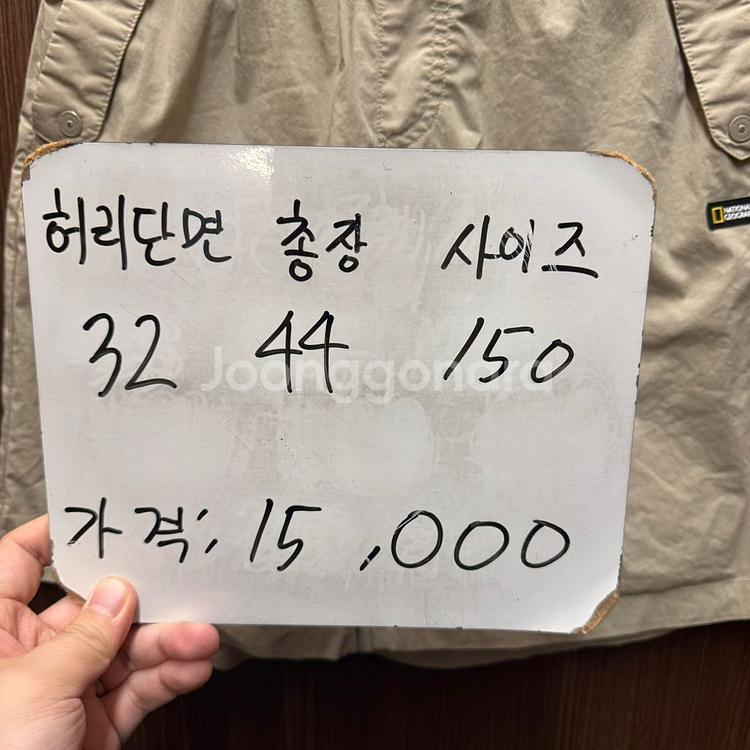 허리단면 총장 사이즈
32 44 150
가격: 15,000
Joonggonara
NATIONAL
GEOGRAPHIC